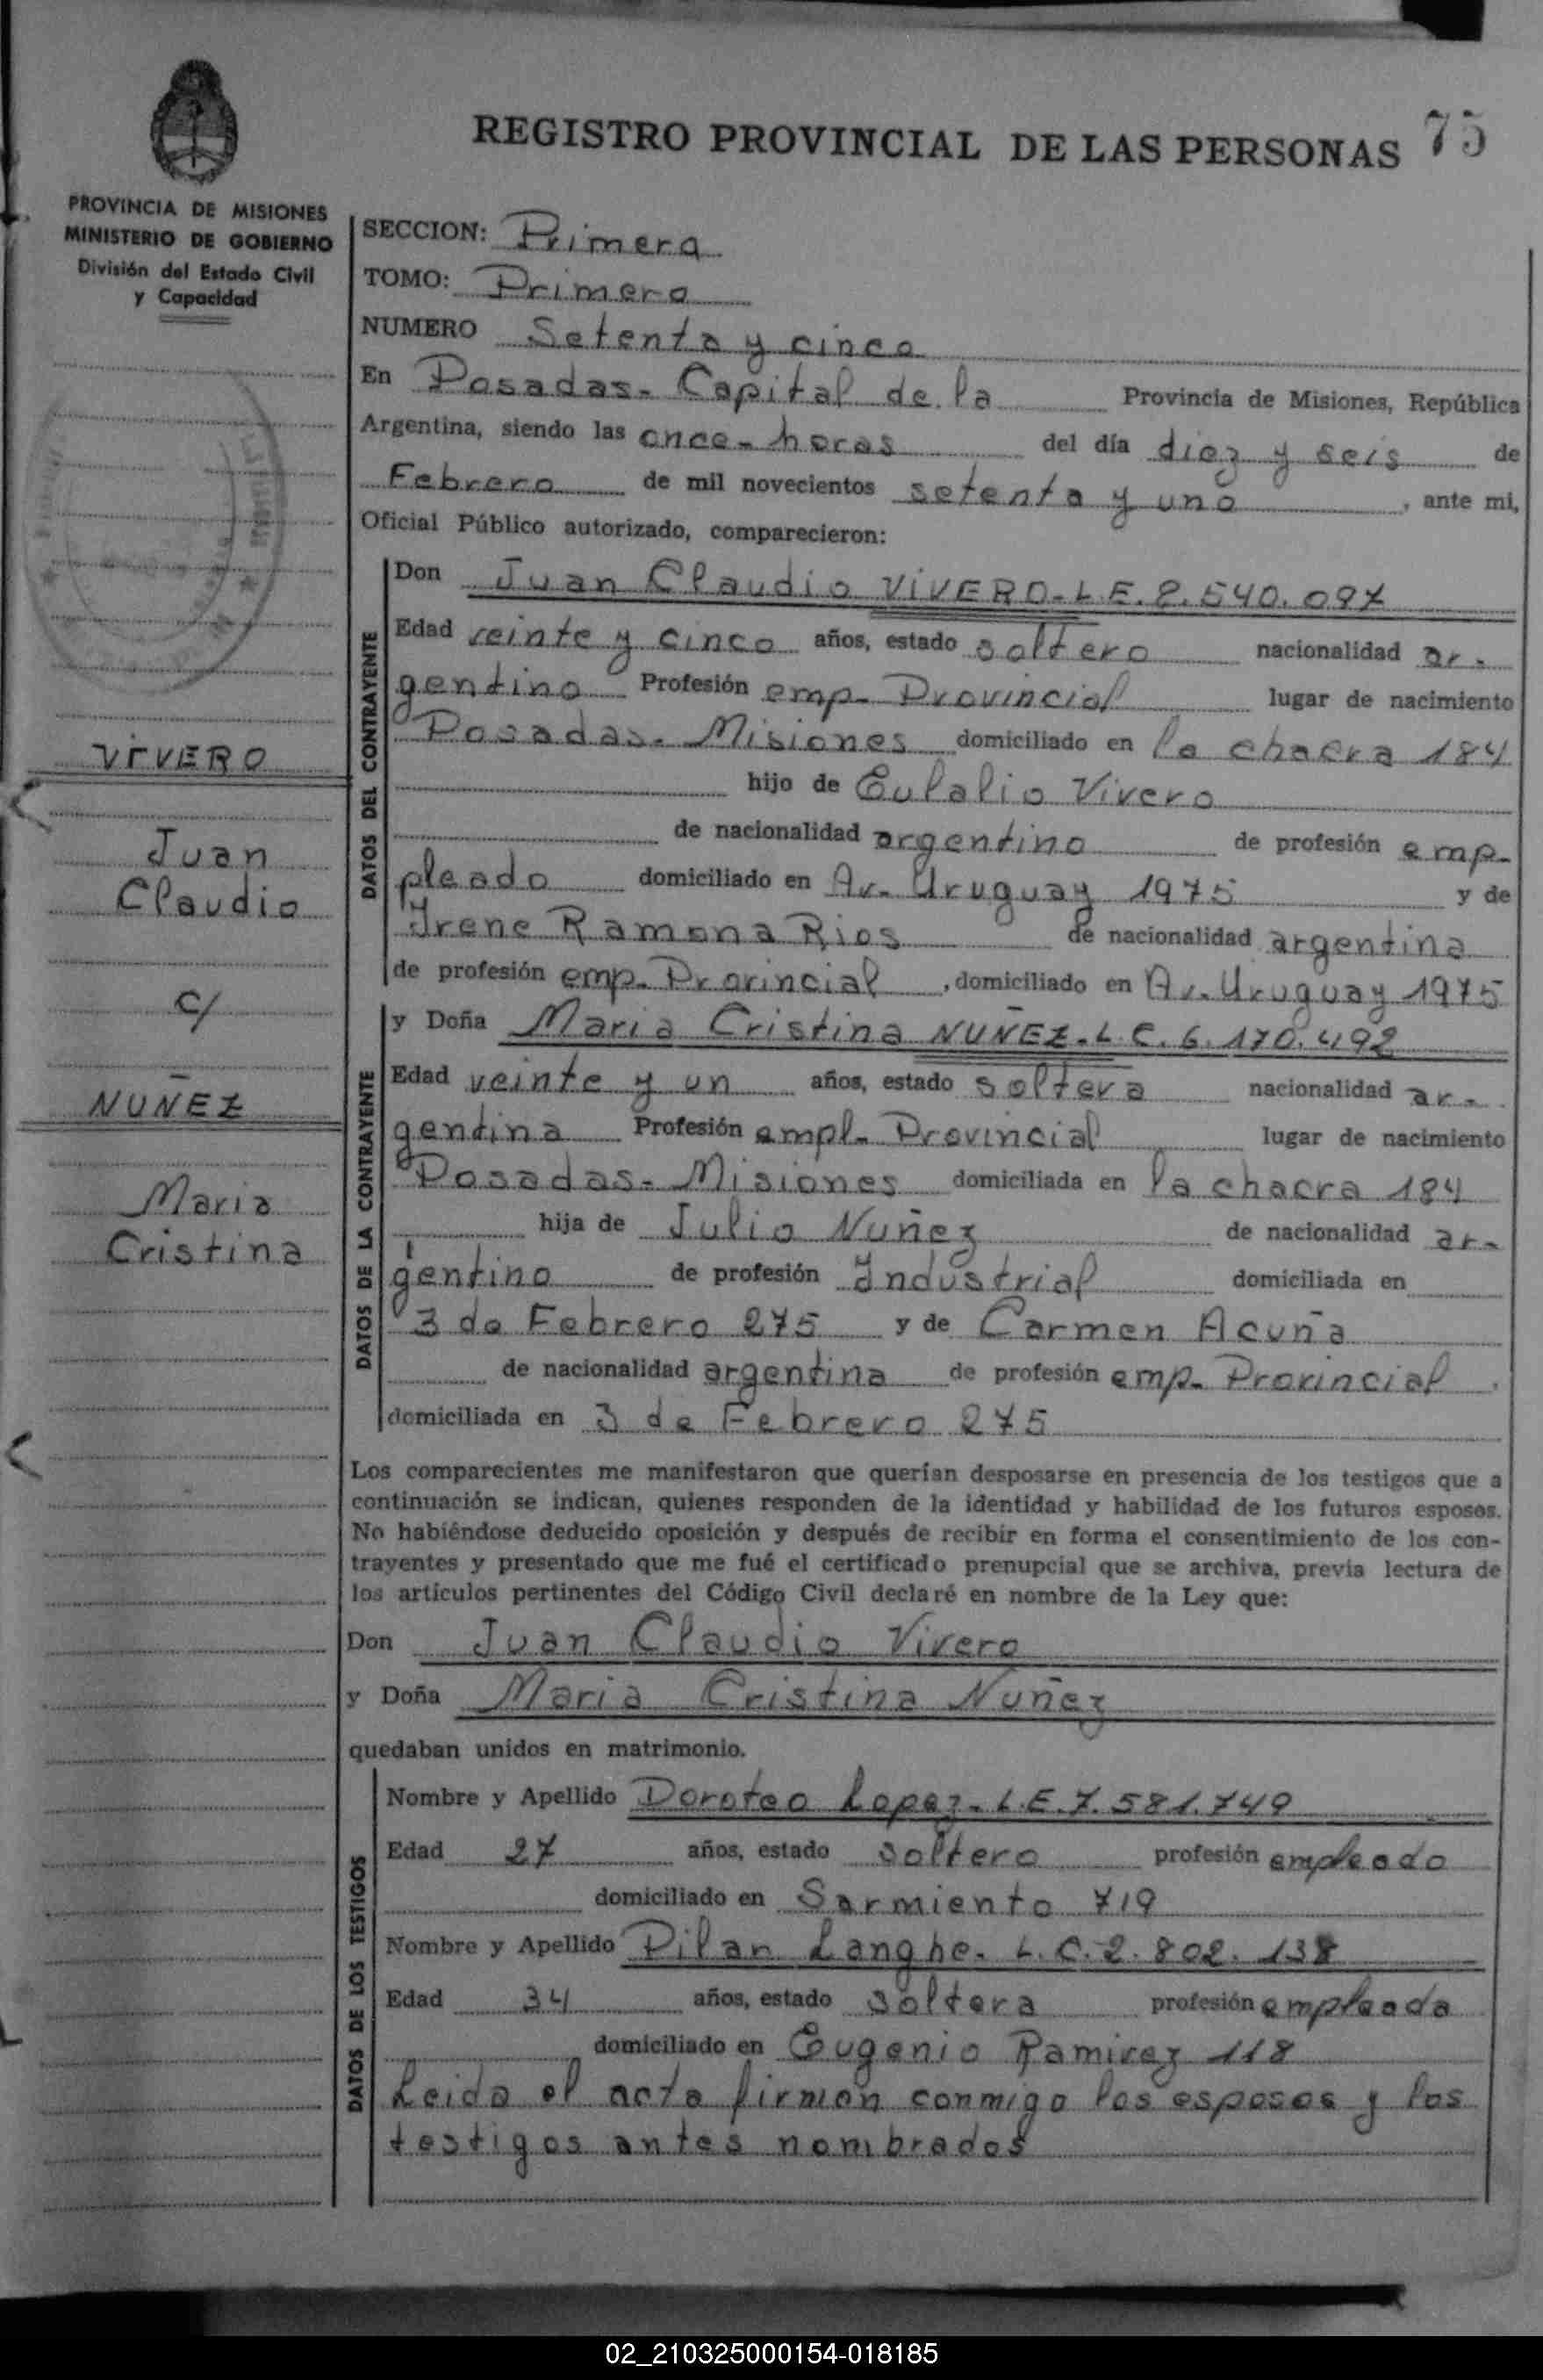 REGISTRO PROVINCIAL DE LAS PERSONAS 75
PROVINCIA DE MISIONES
MINISTERIO DE GOBIERNO
División del Estado Civil
y Capacidad
VIVERO
Juan
Claudio
c/
NUÑEZ
Maria
Cristina
SECCION: Primera
TOMO: Primero
NUMERO Setenta y cinco
En Posadas- Capital de la Provincia de Misiones, República
Argentina, siendo las once- horas del día diez y seis de
Febrero de mil novecientos setenta y uno, ante mi,
Oficial Público autorizado, comparecieron:
DATOS DEL CONTRAYENTE
Don Juan Claudio VIVERO- L.E. 8.540.097
Edad veinte y cinco años, estado soltero nacionalidad ar-
gentino Profesión emp- Provincial lugar de nacimiento
Posadas- Misiones domiciliado en la chacra 184
hijo de Eulalio Vivero
de nacionalidad argentino de profesión emp-
pleado domiciliado en Av. Uruguay 1975 y de
Irene Ramona Rios de nacionalidad argentina
de profesión emp- Provincial, domiciliado en Av. Uruguay 1975
DATOS DE LA CONTRAYENTE
y Doña Maria Cristina NUÑEZ- L.C. 6.170.492
Edad veinte y un años, estado soltera nacionalidad ar-
gentina Profesión empl- Provincial lugar de nacimiento
Posadas- Misiones domiciliada en la chacra 184
hija de Julio Nuñez de nacionalidad ar-
gentino de profesión Industrial domiciliada en
3 de Febrero 275 y de Carmen Acuña
de nacionalidad argentina de profesión emp- Provincial.
domiciliada en 3 de Febrero 275
Los comparecientes me manifestaron que querían desposarse en presencia de los testigos que a
continuación se indican, quienes responden de la identidad y habilidad de los futuros esposos.
No habiéndose deducido oposición y después de recibir en forma el consentimiento de los con-
trayentes y presentado que me fué el certificado prenupcial que se archiva, previa lectura de
los artículos pertinentes del Código Civil declaré en nombre de la Ley que:
Don Juan Claudio Vivero
y Doña Maria Cristina Nuñez
quedaban unidos en matrimonio.
DATOS DE LOS TESTIGOS
Nombre y Apellido Doroteo Lopez- L.E. 7.581.749
Edad 27 años, estado soltero profesión empleado
domiciliado en Sarmiento 719
Nombre y Apellido Pilar Langhe- L.C. 2.802.138
Edad 34 años, estado soltera profesión empleada
domiciliado en Eugenio Ramirez 118
Leida el acta firman conmigo los esposos y los
testigos antes nombrados
02_210325000154-018185